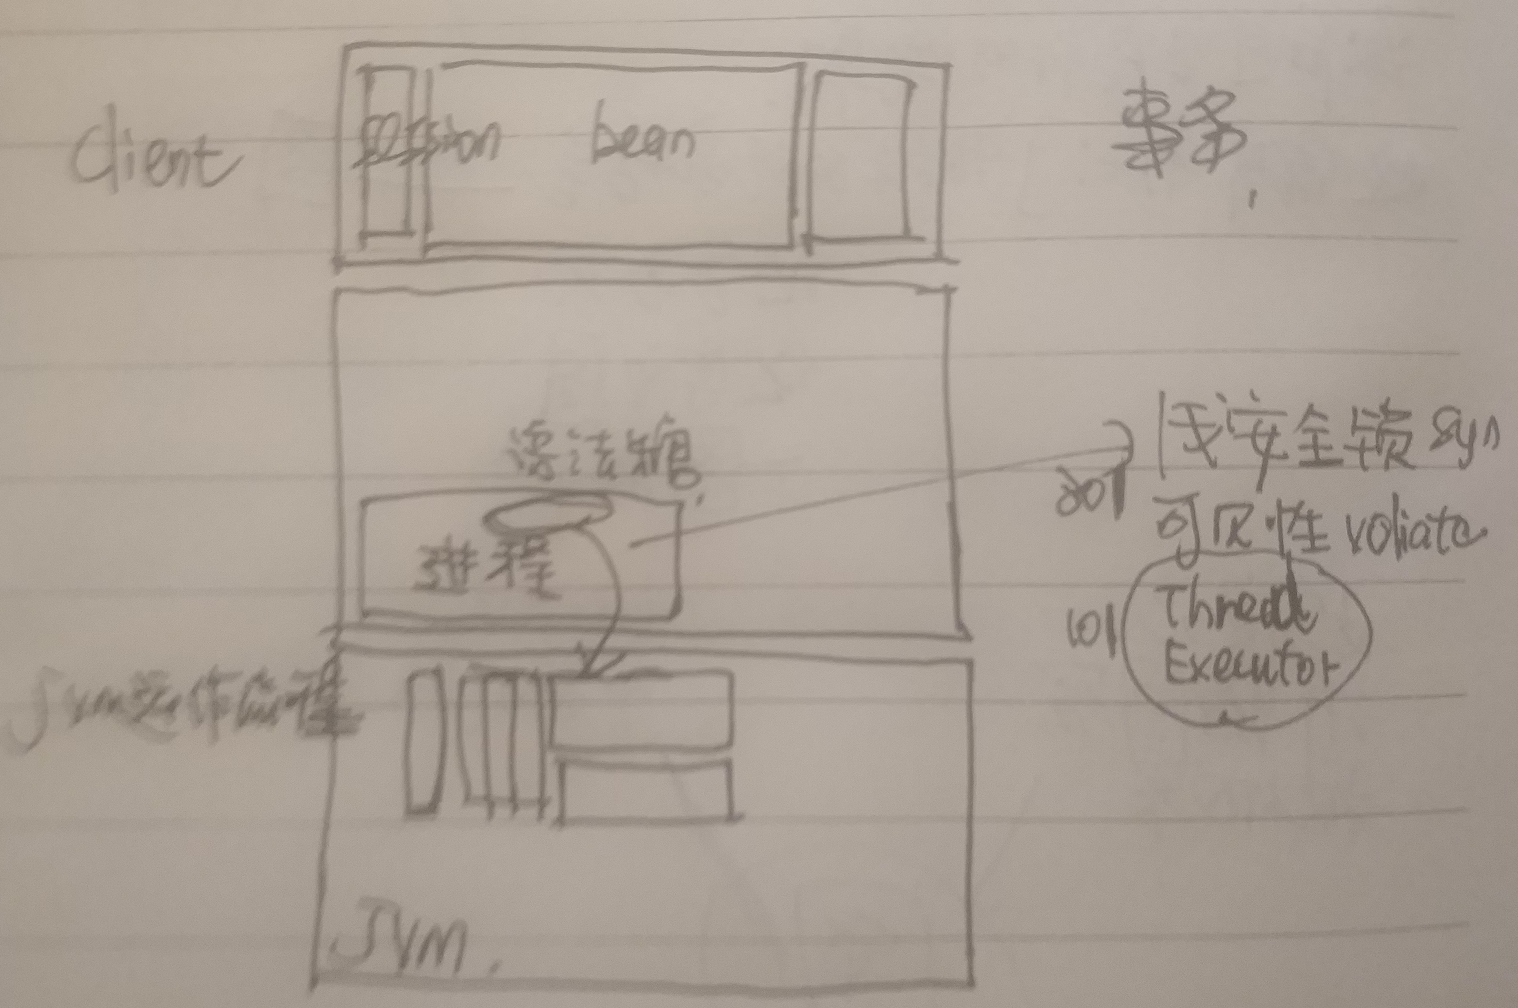 client
session bean
事务,
语法糖,
进程
线安全锁 syn
可见性 voliate
Thread
Executor
JVM操作原理
JVM.